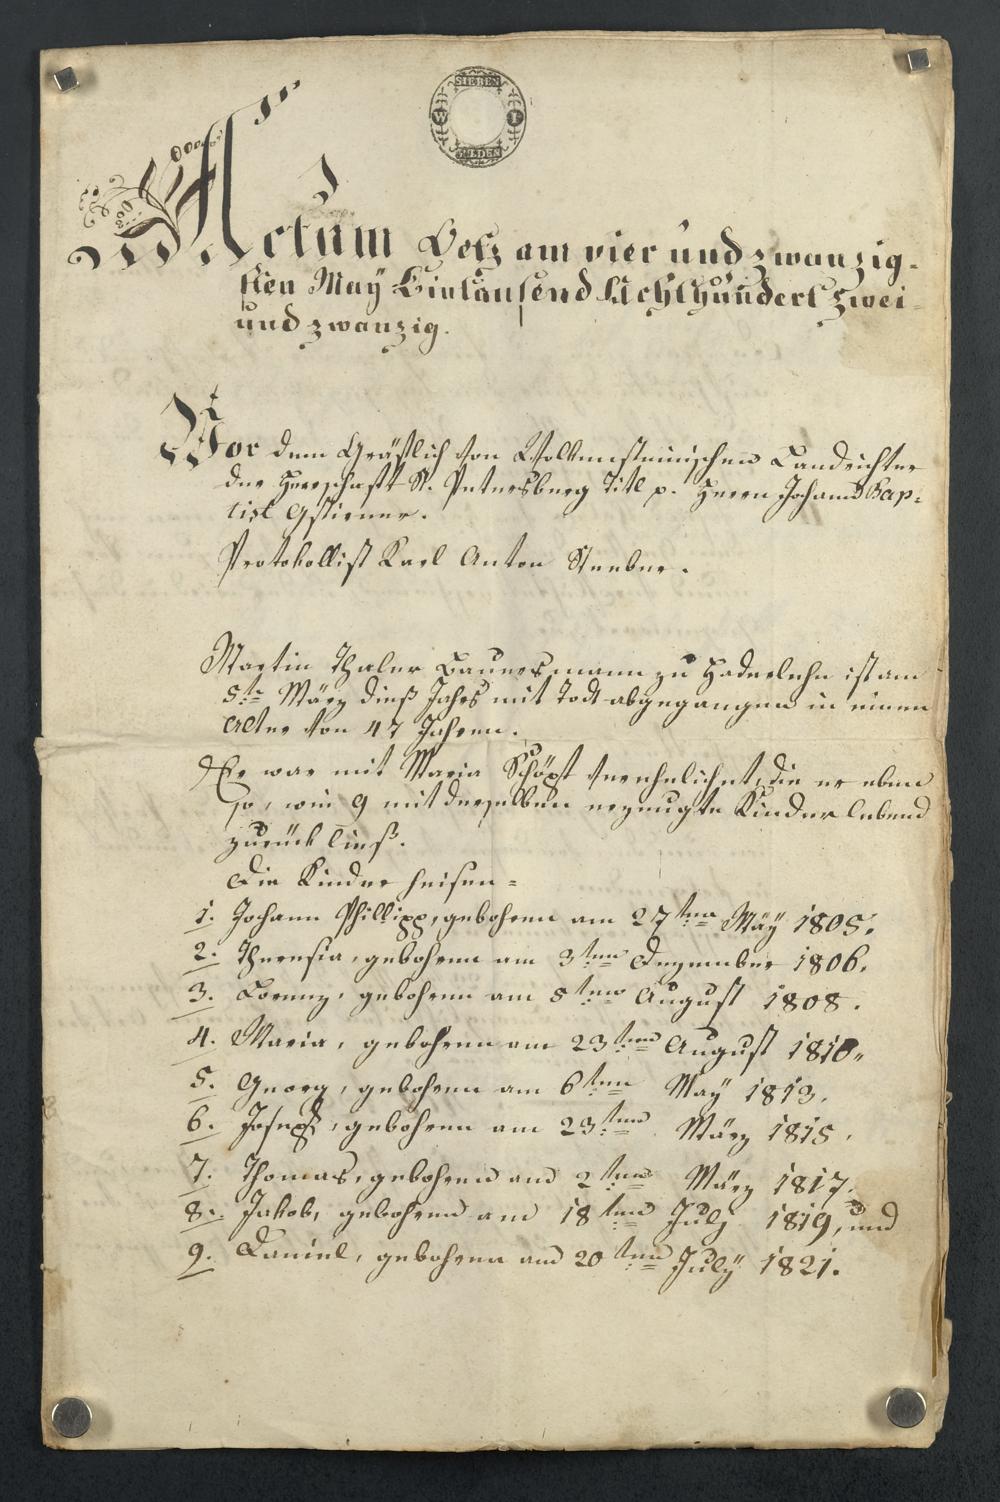 SIEBEN
W F
GULDEN
Actum Oetz am vier und zwanzig-
sten May Eintausend Achthundert zwei
und zwanzig.
Vor dem Gräflich von Wolkensteinischen Landrichter
der Herrschaft St. Petersburg Titl p. Herrn Johann Bap-
tist Gstirner.
Protokollist Karl Anton Stueber.
Martin Thaler Bauersmann zu Haderlehn ist am
5ten März dieß Jahrs mit Tod abgegangen in einem
Alter von 47 Jahren.
Er war mit Maria Schöpf verehelichet, die er eben
so, wie 9 mit derselben erzeugte Kinder lebend
zurück ließ.
Die Kinder heisen =
1. Johann Phillipp, gebohren am 27ten May 1805.
2. Theresia, gebohren am 3ten Dezember 1806.
3. Lorenz, gebohren am 5ten August 1808.
4. Maria, gebohren am 23ten August 1810.
5. Georg, gebohren am 6ten May 1813.
6. Joseph, gebohren am 23ten März 1815.
7. Thomas, gebohren am 2ten März 1817.
8. Jakob, gebohren am 18ten July 1819, und
9. Daniel, gebohren am 20ten July 1821.